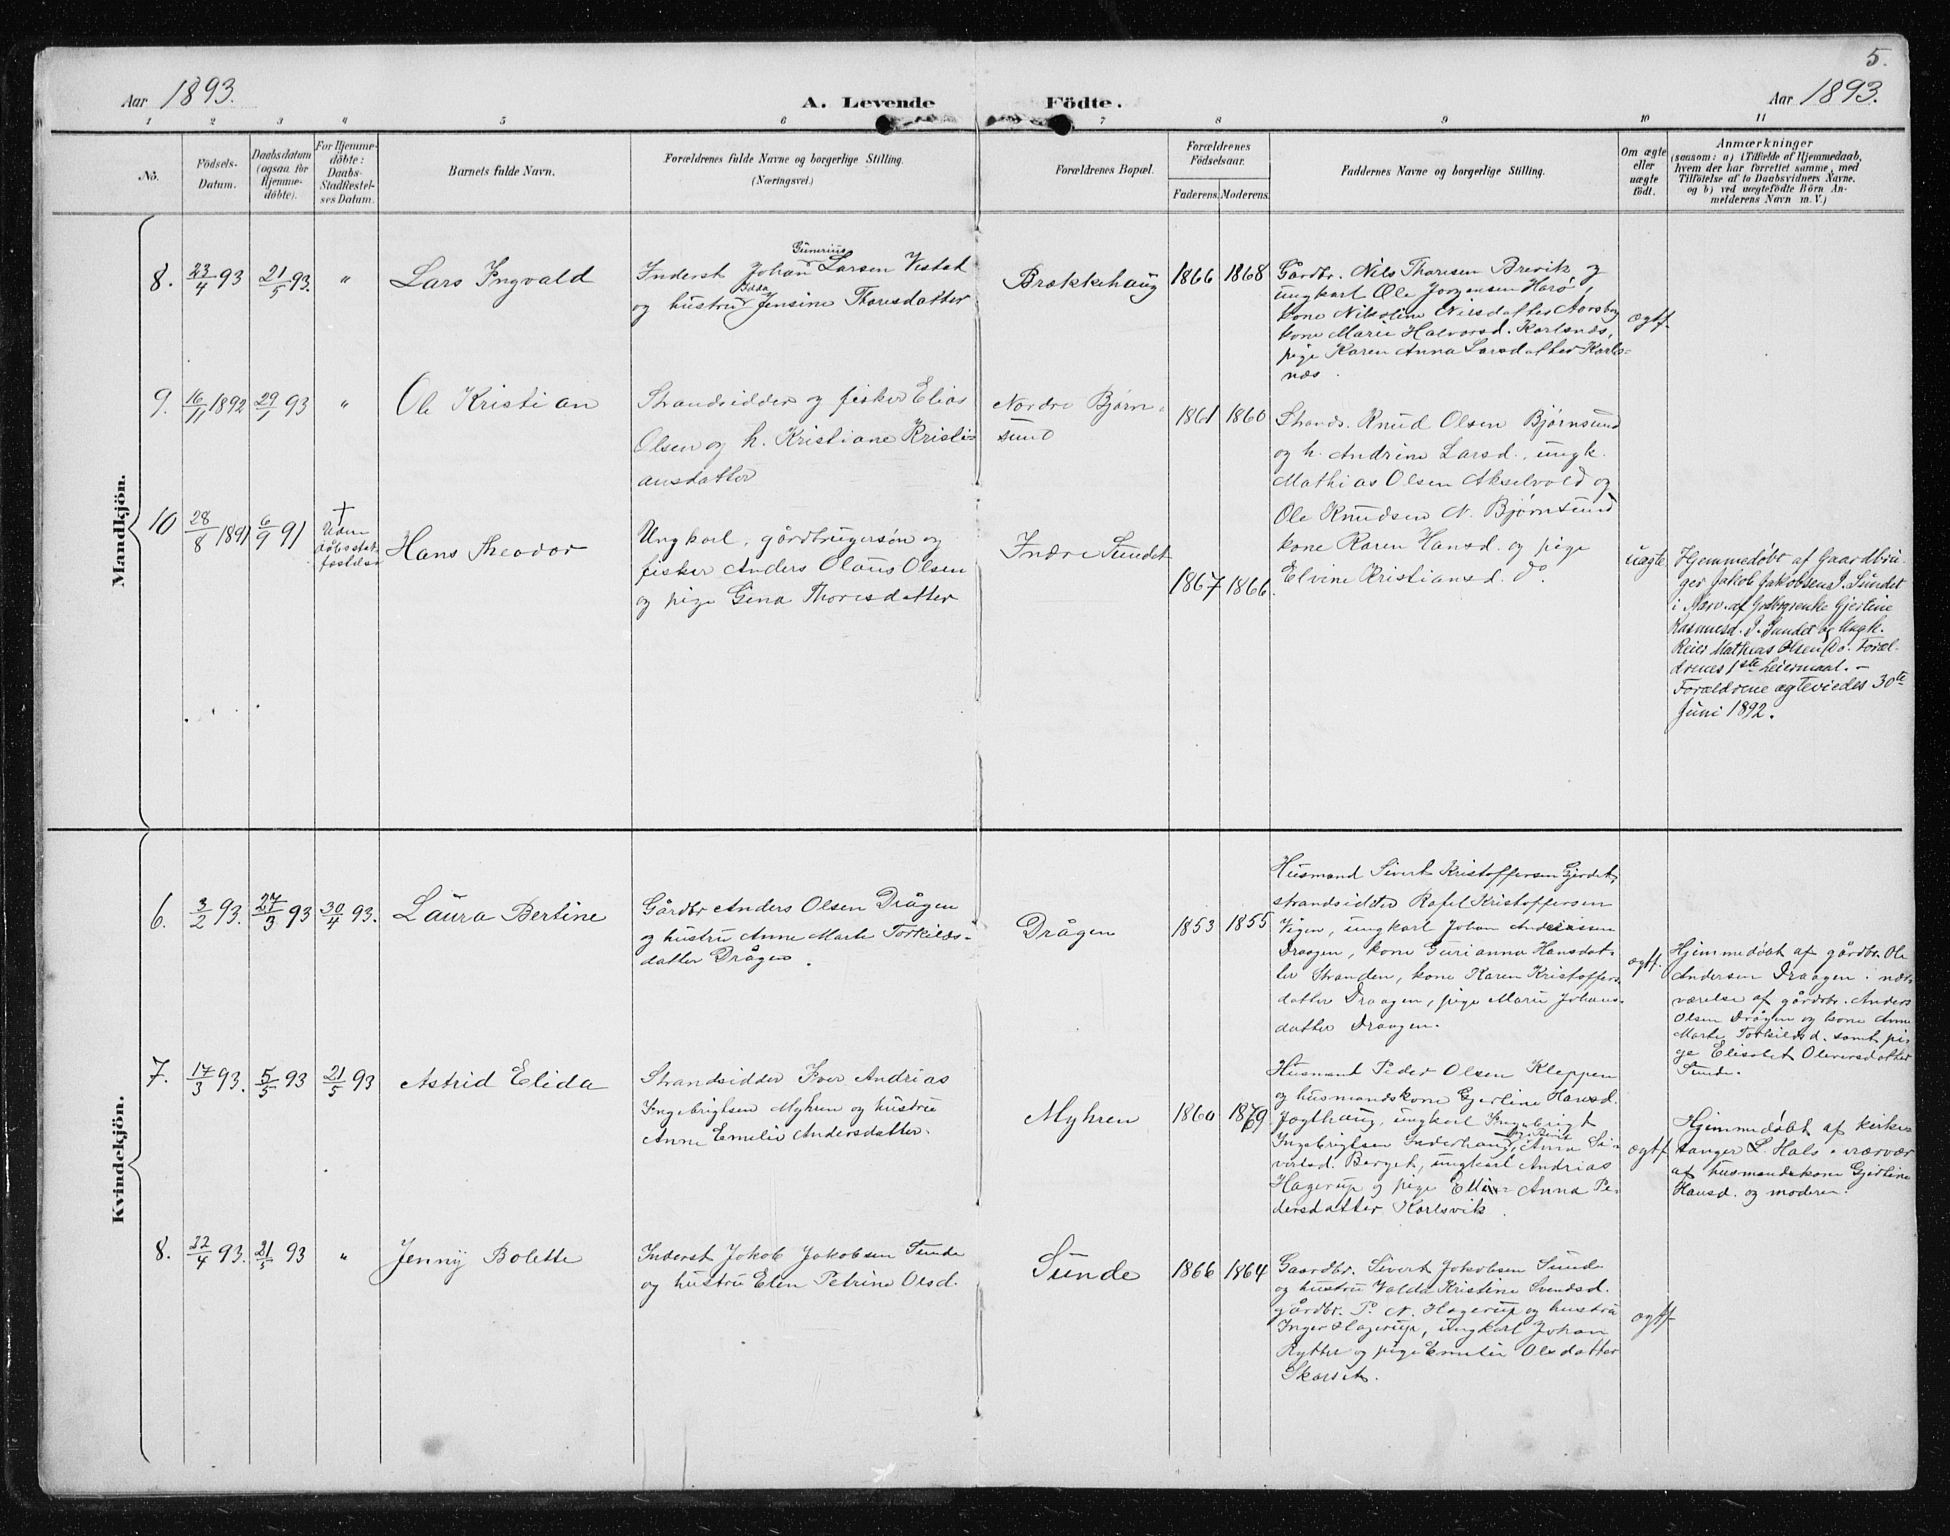 5.
Aar 1893.
A. Levende Födte.
Aar 1893.
1 2 3 4 5 6 7 8 9 10 11
No.
Födsels-
Datum.
Daabsdatum
(ogsaa for
Hjemme-
döbte).
For Hjemme-
döbte:
Daabs-
Stadfæstel-
ses Datum.
Barnets fulde Navn.
Forældrenes fulde Navne og borgerlige Stilling.
(Næringsvei.)
Forældrenes Bopæl.
Forældrenes
Födselsaar.
Faderens. Moderens.
Faddernes Navne og borgerlige Stilling.
Om ægte
eller
uægte
födt.
Anmærkninger
(saasom: a) i Tilfælde af Hjemmedaab,
hvem der har forrettet samme, med
Tilföielse af to Daabsvidners Navne.
og b) ved uægtefödte Börn An-
melderens Navn m. V.)
Mandkjön.
8.
23/4 93
21/5 93.
"
Lars Ingvald
Gunerius
Inderst Johan Larsen Vestad
og hustru Jensine Thoresdatter
Brækkehaug
1866 1868
Gårdbr. Nils Thoresen Brevik og
ungkarl Ole Jørgensen Harø,
kone Nikoline Nilsdatter
kone Marie Halvorsd. Karlsnæs,
pige Karen Anna Larsdatter Karls-
næs.
ægtf.
9.
16/11 1892
29/1 93
"
Ole Kristian
Strandsidder og fisker Elias
Olsen og h. Kristiane Kristi-
ansdatter
Nordre Bjørn-
sund
1861 1860
Strands. Knud Olsen Bjørnsund
og h. Andrine Larsd., ungk.
Mathias Olsen Akselvold og
Ole Knudsen N. Bjørnsund
kone Karen Hansd. og pige
Elvine Kristiansd. do.
10
28/8 1891
6/9 91
†
Uden
dåbsstad-
fæstelse
Hans Theodor
Ungkarl, gårdbrugersøn og
fisker Anders Olaus Olsen
og pige Gina Thoresdatter
Indre Sundet
1867 1866.
uægte
Hjemmedøbt af Gaardbru-
ger Jakob Jakobsen I. Sundet
i Nærv. af Gjertine
Rasmusd. I. Sundet og Ungk.
Reier Mathias Olsen do. Foræl-
drenes 1ste Leiermaal. –
Forældrene ægteviedes 30te
Juni 1892.
Kvindekjön.
6.
3/2 93.
27/3 93
30/4 93.
Laura Bertine
Gårdbr Anders Olsen Drågen
og hustru Anne Marte Torkilds-
datter Drågen.
Drågen
1853 1855
Husmand Sivert Kristoffersen Gjerdet,
strandsidder Rafel Kristoffersen
Vigen, ungkarl Johan Andersen
Draagen, kone Gurianna Hansdat-
ter Stranden, kone Karen Kristoffers-
datter Draagen, pige Marie Johans-
datter Draagen.
ægtf.
Hjemmedøbt af gårdbr. Ole
Andersen Draagen i nær-
værelse af gårdbr. Anders
Olsen Drågen og kone Anne
Marte Torkildsd. samt pi-
ge Elisabet Oliversdatter
Sunde.
7.
17/3 93.
5/5 93
21/5 93
Astrid Elida
Strandsidder Iver Andrias
Ingebrigtsen Myhren og hustru
Anne Emelie Andersdatter.
Myhren
1860 1869
Husmand Peder Olsen Kleppen
og husmandskone Gjertine Hansd.
Jogthaug, ungkarl Ingebrigt
Ingebrigtsen Inderhaug, Anna Si-
vertsd. Berget, ungkarl Andrias
Hagerup og pige Anna Pe-
dersdatter Karlsvik.
ægtf.
Hjemmedøbt af kirke-
sanger L. Hals i nærvær
af husmandskone Gjertine
Hansd. og moderen.
8.
22/4 93.
21/5 93
"
Jenny Bolette
Inderst Jakob Jakobsen Sunde
og hustru Elen Petrine Olsd.
Sunde
1866 1864
Gaardbr. Sivert Jakobsen Sunde
og hustru Valda Kristine Svendsd.
gårdbr. P. N. Hagerup og hustru
Inger Hagerup, ungkarl Johan
Rytter og pige Emelie Olsdatter
Skarset.
ægtf.